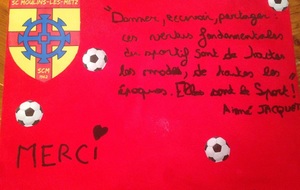 SC MOULINS-LES-METZ
SCM
"Donner, recevoir, partager :
ces vertus fondamentales
du sportif sont de toutes
les modes, de toutes les
époques. Elles sont le Sport"
Aimé JACQUET
MERCI